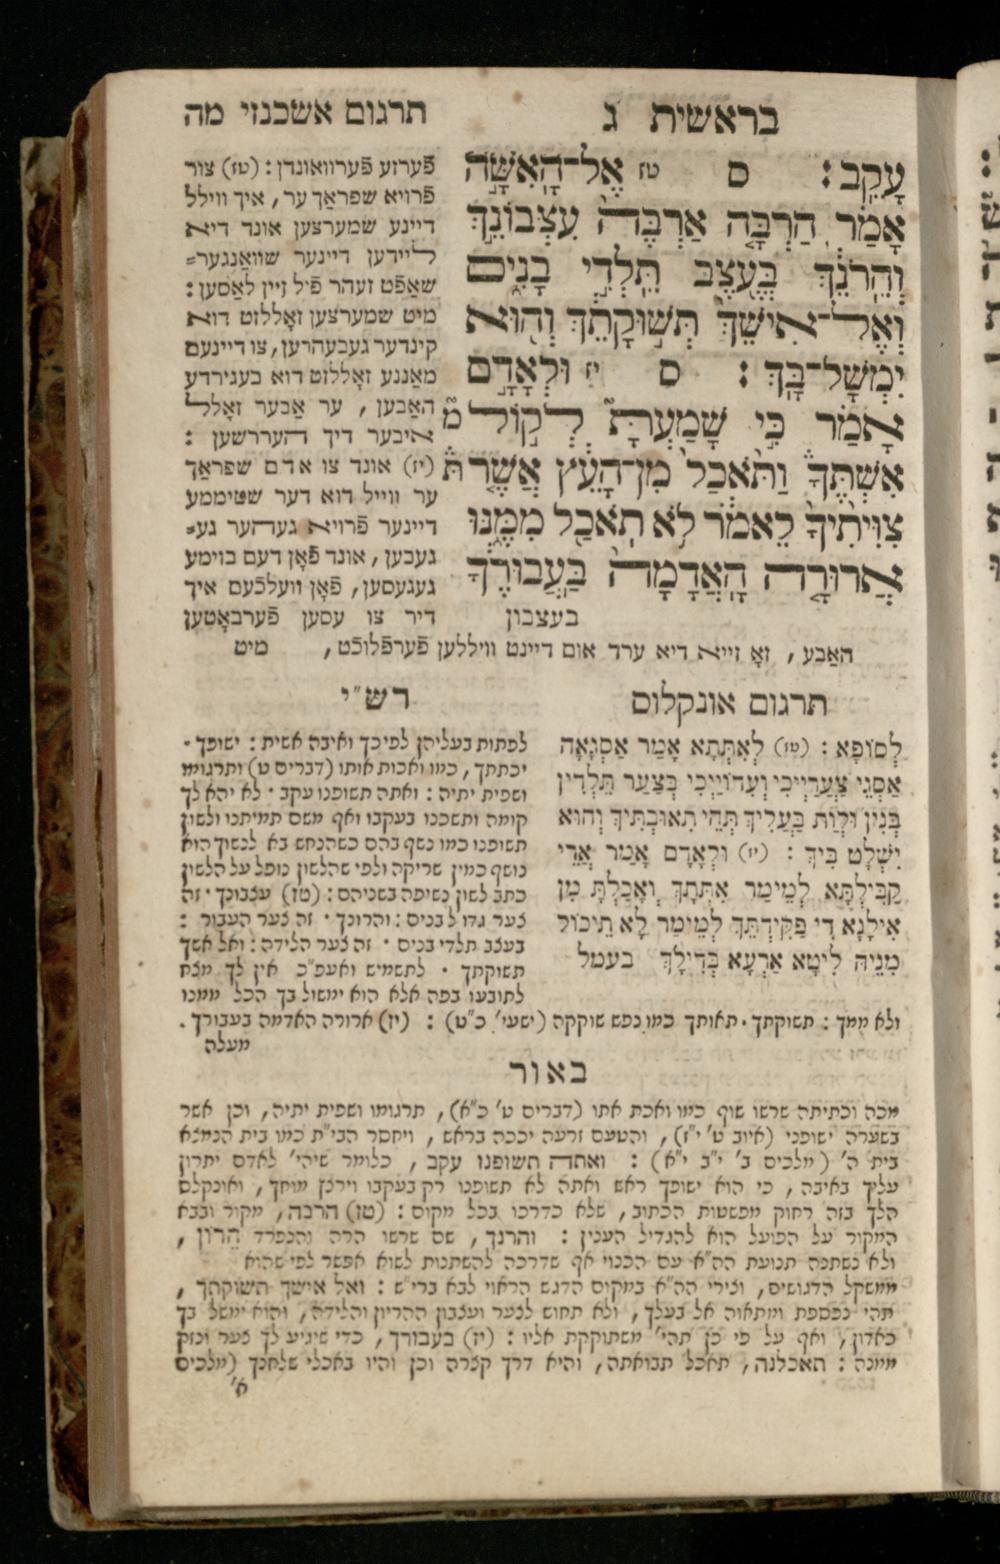 בראשית ג
תרגום אשכנזי מה
עָקֵב : ס טז אֶל־הָאִשָּׁה
אָמַר הַרְבָּה אַרְבֶּה עִצְּבוֹנֵךְ
וְהֵרֹנֵךְ בְּעֶצֶב תֵּלְדִי בָנִים
וְאֶל־אִישֵׁךְ תְּשׁוּקָתֵךְ וְהוּא
יִמְשָׁל־בָּךְ : ס יז וּלְאָדָם
אָמַר כִּי שָׁמַעְתָּ לְקוֹל
אִשְׁתֶּךָ וַתֹּאכַל מִן־הָעֵץ אֲשֶׁר
צִוִּיתִיךָ לֵאמֹר לֹא תֹאכַל מִמֶּנּוּ
אֲרוּרָה הָאֲדָמָה בַּעֲבוּרֶךָ
בעצבון
פֿערזע פֿערוואונדן : (טז) צור
פֿרויא שפראַך ער, איך ווילל
דיינע שמערצען אונד דיא
ליידען דיינער שוואַנגער=
שאַפֿט זעהר פֿיל זיין לאַסען :
מיט שמערצען זאָללזט דוא
קינדער געבעהרען, צו דיינעם
מאַננע זאָללזט דוא בעגירדע
האַבען, ער אַבער זאָלל
איבער דיך העררשען :
(יז) אונד צו אדם שפראַך
ער ווייל דוא דער שטיממע
דיינער פֿרויא געהער גע=
געבען, אונד פֿאָן דעם בוימע
געגעסען, פֿאָן וועלכֿעם איך
דיר צו עסען פֿערבאָטען
האַבע, זאָ זייא דיא ערד אום דיינט וויללען פֿערפֿלוכֿט, מיט
תרגום אונקלוס
לְסוֹפָא : (טז) לְאִתְּתָא אָמַר אַסְגָאָה
אַסְגֵי צַעֲרַיְיכִי וְעִדּוּיַיְכִי בְּצַעַר תֵּלְדִין
בְּנִין וּלְוַת בַּעֲלִיךְ תְּהֵי תְאוּבְתִּיךְ וְהוּא
יִשְׁלָט בִּיךְ : (יז) וּלְאָדָם אָמַר אֲרֵי
קַבֵּילְתָּא לְמֵימַר אִתְּתָךְ וַאֲכַלְתְּ מִן
אִילָנָא דִי פַּקֵּידְתָּךְ לְמֵימַר לָא תֵיכוֹל
מִנֵּיהּ לִיטָא אַרְעָא בְּדִילָךְ בעמל
רש"י
לפתות בעליהן לפיכך ואיבה אשית : ישופך ·
יכתתך, כמו ואכות אותו (דברים ט) ותרגומו
ושפית יתיה : ואתה תשופנו עקב · לא יהא לך
קומה ותשכנו בעקבו ואף משם תמיתנו ולשון
תשופנו כמו נשף בהם כשהנחש בא לנשוך הוא
נושף כמין שריקה ולפי שהלשון נופל על הלשון
כתב לשון נשיפה בשניהם : (טז) עצבונך · זה
צער גדול בנים : והרונך · זה צער העבור :
בעצב תלדי בנים · זה צער הלידה : ואל אשך
תשוקתך · לתשמיש ואעפ"כ אין לך מצח
לתובעו בפה אלא הוא ימשול בך הכל ממנו
ולא ממך : תשוקתך · תאותך כמו נפש שוקקה (ישעי' כ"ט) : (יז) ארורה האדמה בעבורך ·
מעלה
באור
מכה וכתיתה שרשו שוף כמו ואכת אתו (דברים ט' כ"א), תרגומו ושפית יתיה, וכן אשר
בשערה ישופני (איוב ט' י"ז), והטעם זרעה יככה בראש, ויחסר הבי"ת כמו בית הנמצא
בית ה' (מלכים ב' י"ב י"א) : ואתה תשופנו עקב, כלומר שיהי' לאדם יתרון
עליך באיבה, כי הוא ישופך ראש ואתה לא תשופנו רק בעקבו וירצץ מוחך, ואונקלס
הלך בזה רחוק מפשטות הכתוב, שלא כדרכו בכל מקום : (טז) הרבה, מקור ובבא
המקור על הפועל הוא להגדיל הענין : והרנך, שם שרשו הרה והנפרד הֵרוֹן,
ולא נשתנה תנועת הה"א עם הכנוי אף שדרכה להשתנות לשוא אפשר לפי שהוא
ממשקל הדגושים, וצירי הה"א במקום הדגש הראוי לבא ברי"ש : ואל אישך תשוקתך,
תהי נכספת ומתאוה אל בעלך, ולא תחוש לצער ועצבון ההריון והלידה, והוא ימשל בך
כאדון, ואף על פי כן תהי' משתוקקת אליו : (יז) בעבורך, כדי שיגיע לך צער ונזק
ממנה : תאכלנה, תאכל תבואתה, והיא דרך קצרה וכן והיו באכלי שלחנך (מלכים
א'